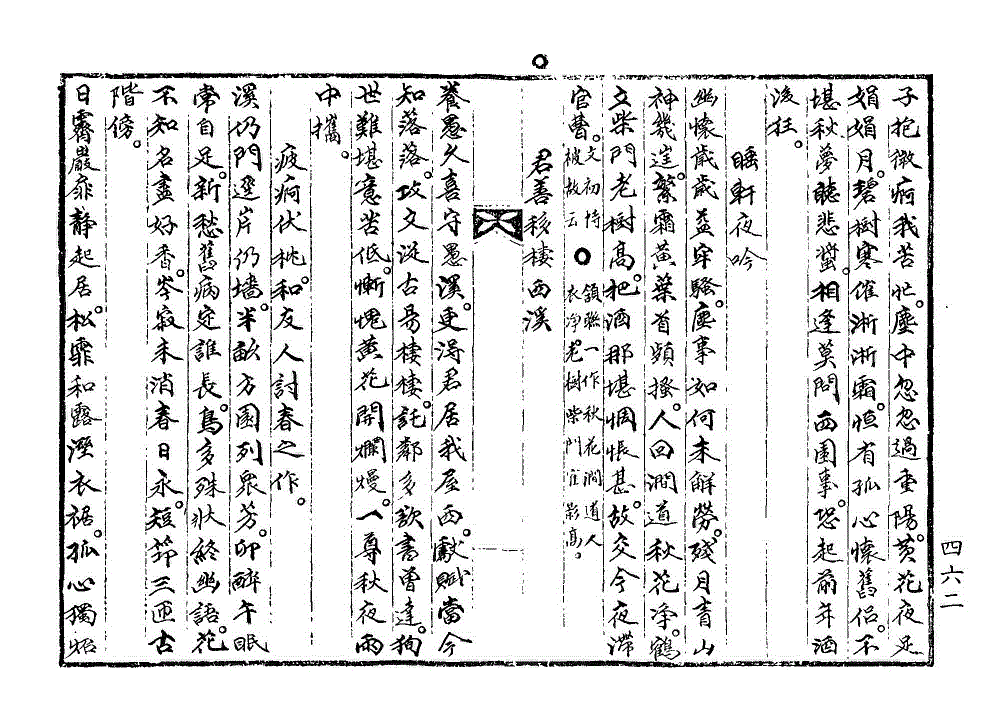 子抱微痾我苦忙。塵中忽忽過重陽。黃花夜疋
娟娟月。碧樹寒催淅淅霜。恒有孤心懷舊侶。不
堪秋夢聽悲螿。相逢莫問西園事。恐起前年酒
後狂。
睡軒夜吟
幽懷歲歲益牢騷。塵事如何未解勞。殘月青山
神幾迋。繁霜黃葉首頻搔。人回澗道秋花淨。鶴
立柴門老樹高。把酒那堪惆悵甚。故交今夜滯
官曹。文初侍被故云○頷聯一作秋花澗道人衣淨老樹柴門影高。
君善移棲西溪
養愚久喜守愚溪。更淂君居我屋西。獻賦當今
知落落。攻文從古易棲棲。託鄰多歎書曾達。狥
世難堪意苦低。慚愧黃花開爛熳。一尊秋夜雨
中攜。
疲痾伏枕。和友人討春之作。
溪仍門逕岸仍墻。半畝方園列衆芳。卯醉午眠
常自足。新愁舊病定誰長。鳥多殊狀終幽語。花
不知名盡好香。岑寂未消春日永。短筇三匝古
階傍。
日霽巖扉靜起居。松霏和露溼衣裾。孤心獨炤
四六二